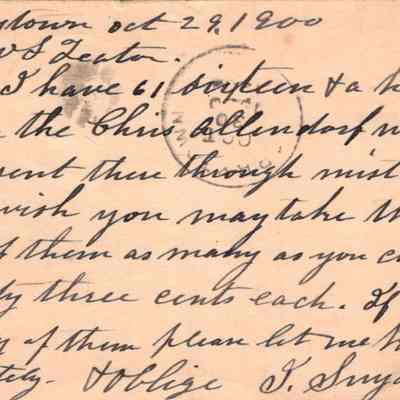 ytown Oct 29, 1900
S Zeator.
I have 61 sixteen & a h
the Chris Allendorf
vent there through mist
wish you may take th
f them as many as you c
ty three cents each. If
y of them please let me k
tely. & oblige J. Sny